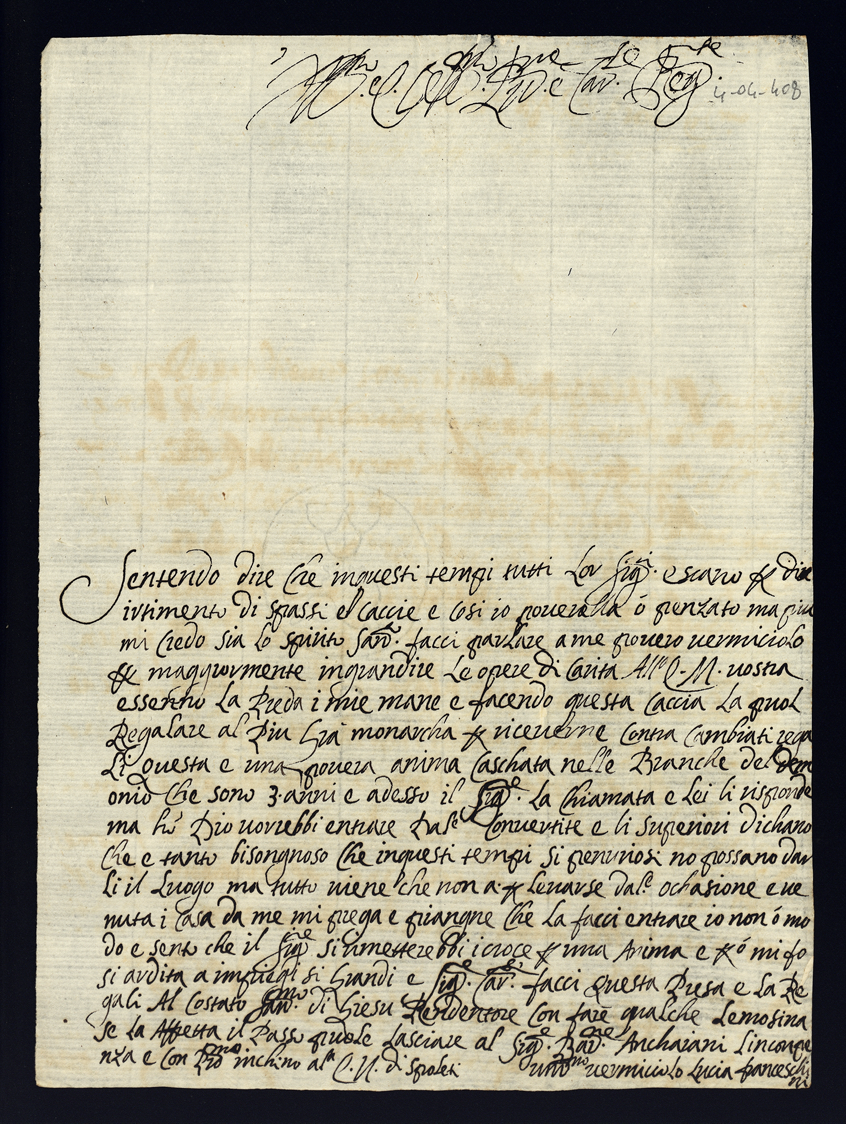 Ill.mo e Cel.mo Prn.e Car. Sig.
4-04-408
Sentendo dire che inquesti tempi tutti Lor Sig.ri escano p diu
irtimento di spassi el caccie e cosi io pouerella ó penzato ma piu
mi credo sia lo spirito San.o facci parlare a me pouero uermiciolo
p maggiormente ingrandire le opere di Carita All' Q. M. uostra
essenno La Preda i mie mane e facendo questa Caccia La puol
Regalare al Piu Gra monarcha p riceuerne Contra Cambiati rega
Li questa e una pouera anima Caschata nelle Branche del dem
onio che sono 3. anni e adesso il Sig.e La Chiamata e Lei li risponde
ma hó Dio uorrebbi entrare Dal.e Conuertite e li Superiori dichano
Che e tanto bisongnoso Che inquesti tempi si penuriosi no possano dar
li il Luogo ma tutto uiene che non a p Leuarse dal.e ochasione e ue
nuta i Casa da me mi prega e piangne Che La facci entrare io non ó mo
do e sento che il Sig.e si rimetterebbi i croce p una Anima e p ó mi fo
si ardita a impiegli si Grandi e Sig. Car. facci questa Presa e La Re
gali Al Costato San.mo di Giesu Redentore Con fare qualche Lemosina
se La Affretta il Passo puole Lasciare al Sig.e Bar.ne Anchaiani Lincompe
nza e Con Pro.mo inchino al.a C. V. di Spoleti
um.mo uermiciolo Lucia franceschi
ni